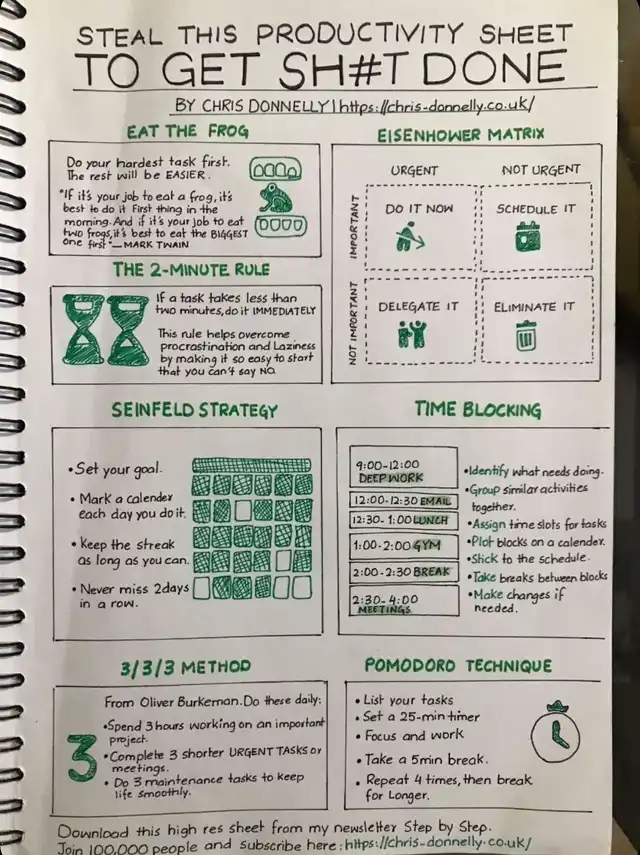 STEAL THIS PRODUCTIVITY SHEET
TO GET SH#T DONE
BY CHRIS DONNELLY | https://chris-donnelly.co.uk/
EAT THE FROG
Do your hardest task first.
The rest will be EASIER.
"If it's your job to eat a frog, it's
best to do it First thing in the
morning. And if it's your job to eat
two frogs, it's best to eat the BIGGEST
one first" — MARK TWAIN
THE 2-MINUTE RULE
If a task takes less than
two minutes, do it IMMEDIATELY
This rule helps overcome
procrastination and Laziness
by making it so easy to start
that you can't say NO.
EISENHOWER MATRIX
URGENT
NOT URGENT
IMPORTANT
DO IT NOW
SCHEDULE IT
NOT IMPORTANT
DELEGATE IT
ELIMINATE IT
SEINFELD STRATEGY
•Set your goal.
• Mark a calender
each day you do it.
• Keep the streak
as long as you can.
• Never miss 2days
in a row.
TIME BLOCKING
9:00-12:00
DEEP WORK
12:00-12:30 EMAIL
12:30-1:00 LUNCH
1:00-2:00 GYM
2:00-2:30 BREAK
2:30-4:00
MEETINGS
•Identify what needs doing.
•Group similar activities
together.
•Assign time slots for tasks
•Plot blocks on a calender.
•Stick to the schedule.
•Take breaks between blocks
•Make changes if
needed.
3/3/3 METHOD
3
From Oliver Burkeman. Do these daily:
•Spend 3 hours working on an important
project.
•Complete 3 shorter URGENT TASKS or
meetings.
• Do 3 maintenance tasks to keep
life smoothly.
POMODORO TECHNIQUE
• List your tasks
• Set a 25-min timer
• Focus and work
• Take a 5min break.
• Repeat 4 times, then break
for Longer.
Download this high res sheet from my newsletter Step by Step.
Join 100,000 people and subscribe here: https://chris-donnelly.co.uk/